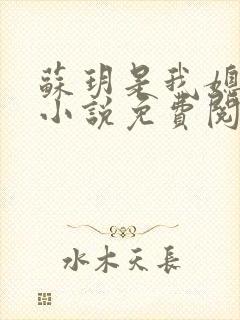 蘇玥是我媳
小說免費閱
水木天長